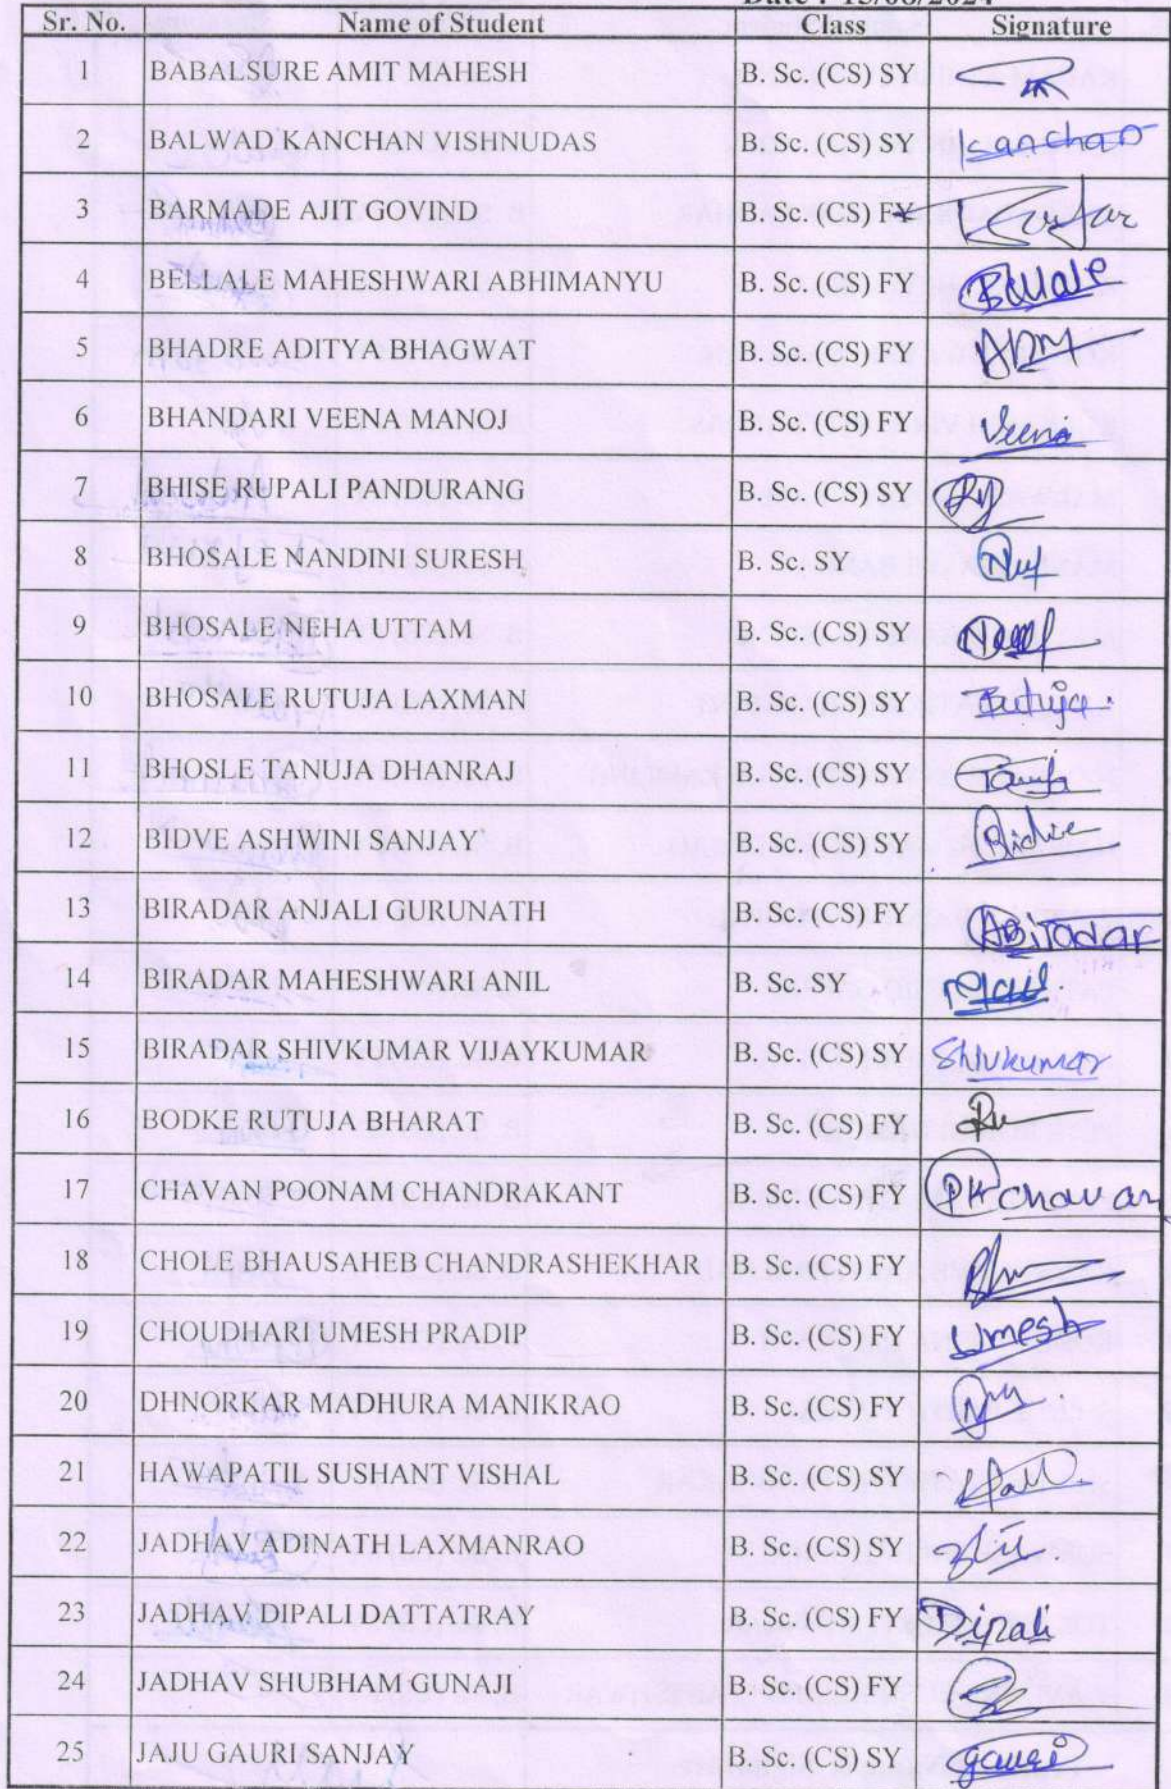 Date : 15/08/2024
Sr. No. Name of Student Class Signature
1 BABALSURE AMIT MAHESH B. Sc. (CS) SY
2 BALWAD KANCHAN VISHNUDAS B. Sc. (CS) SY Kanchan
3 BARMADE AJIT GOVIND B. Sc. (CS) FY
4 BELLALE MAHESHWARI ABHIMANYU B. Sc. (CS) FY Bellale
5 BHADRE ADITYA BHAGWAT B. Sc. (CS) FY
6 BHANDARI VEENA MANOJ B. Sc. (CS) FY Veena
7 BHISE RUPALI PANDURANG B. Sc. (CS) SY
8 BHOSALE NANDINI SURESH B. Sc. SY
9 BHOSALE NEHA UTTAM B. Sc. (CS) SY
10 BHOSALE RUTUJA LAXMAN B. Sc. (CS) SY Rutuja
11 BHOSLE TANUJA DHANRAJ B. Sc. (CS) SY Tanuja
12 BIDVE ASHWINI SANJAY B. Sc. (CS) SY Bidve
13 BIRADAR ANJALI GURUNATH B. Sc. (CS) FY ABiradar
14 BIRADAR MAHESHWARI ANIL B. Sc. SY
15 BIRADAR SHIVKUMAR VIJAYKUMAR B. Sc. (CS) SY Shivkumar
16 BODKE RUTUJA BHARAT B. Sc. (CS) FY
17 CHAVAN POONAM CHANDRAKANT B. Sc. (CS) FY PKchavan
18 CHOLE BHAUSAHEB CHANDRASHEKHAR B. Sc. (CS) FY
19 CHOUDHARI UMESH PRADIP B. Sc. (CS) FY Umesh
20 DHNORKAR MADHURA MANIKRAO B. Sc. (CS) FY
21 HAWAPATIL SUSHANT VISHAL B. Sc. (CS) SY
22 JADHAV ADINATH LAXMANRAO B. Sc. (CS) SY
23 JADHAV DIPALI DATTATRAY B. Sc. (CS) FY Dipali
24 JADHAV SHUBHAM GUNAJI B. Sc. (CS) FY
25 JAJU GAURI SANJAY B. Sc. (CS) SY gauri